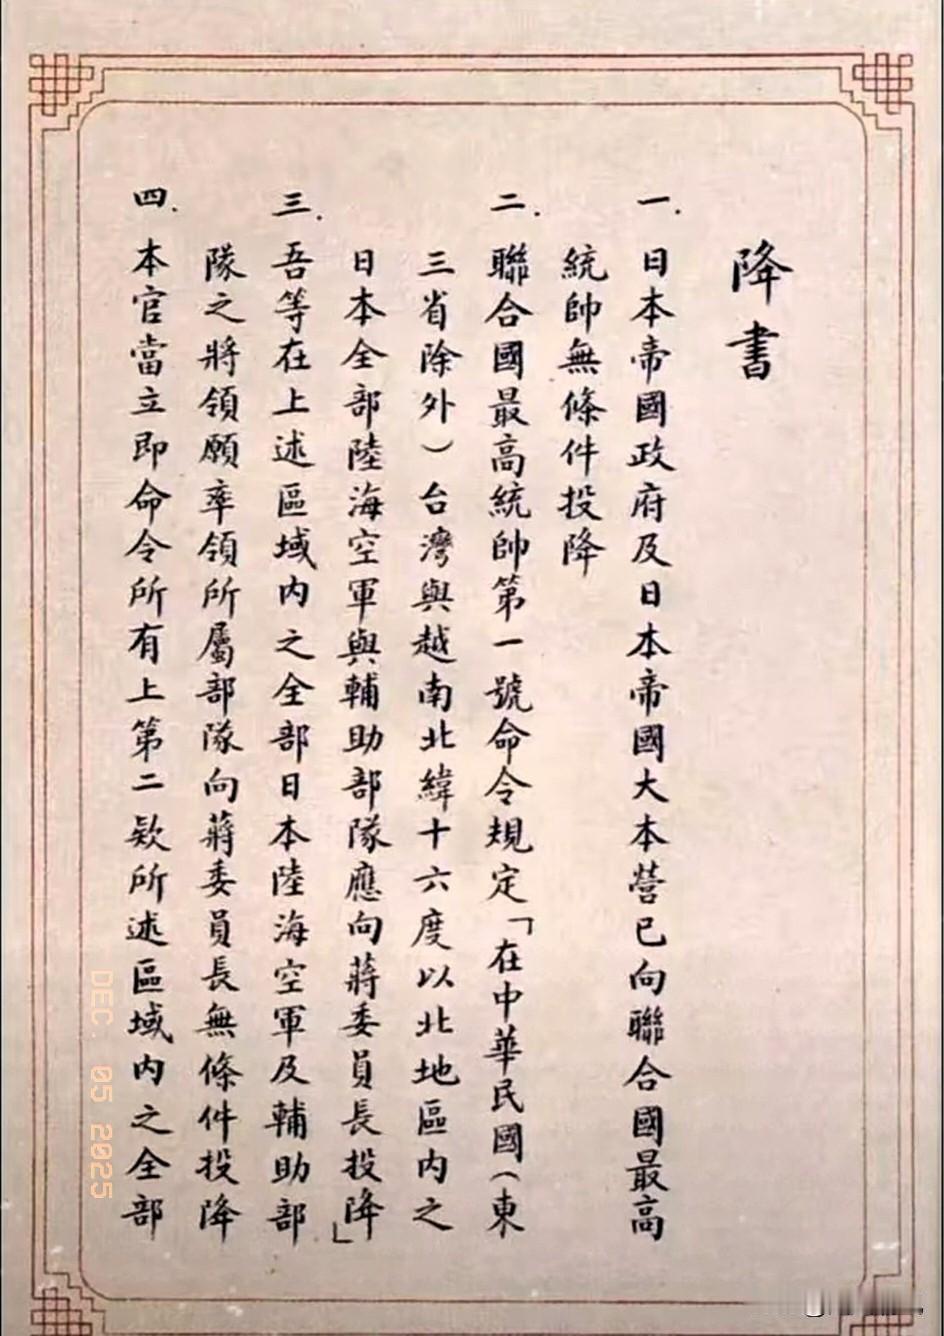 降書
一.日本帝國政府及日本帝國大本營已向聯合國最高
統帥無條件投降
二.聯合國最高統帥第一號命令規定「在中華民國(東
三省除外)台灣與越南北緯十六度以北地區內之
日本全部陸海空軍與輔助部隊應向蔣委員長投降」
三.吾等在上述區域內之全部日本陸海空軍及輔助部
隊之將領願率領所屬部隊向蔣委員長無條件投降
四.本官當立即命令所有上第二款所述區域內之全部
DEC 05 2025